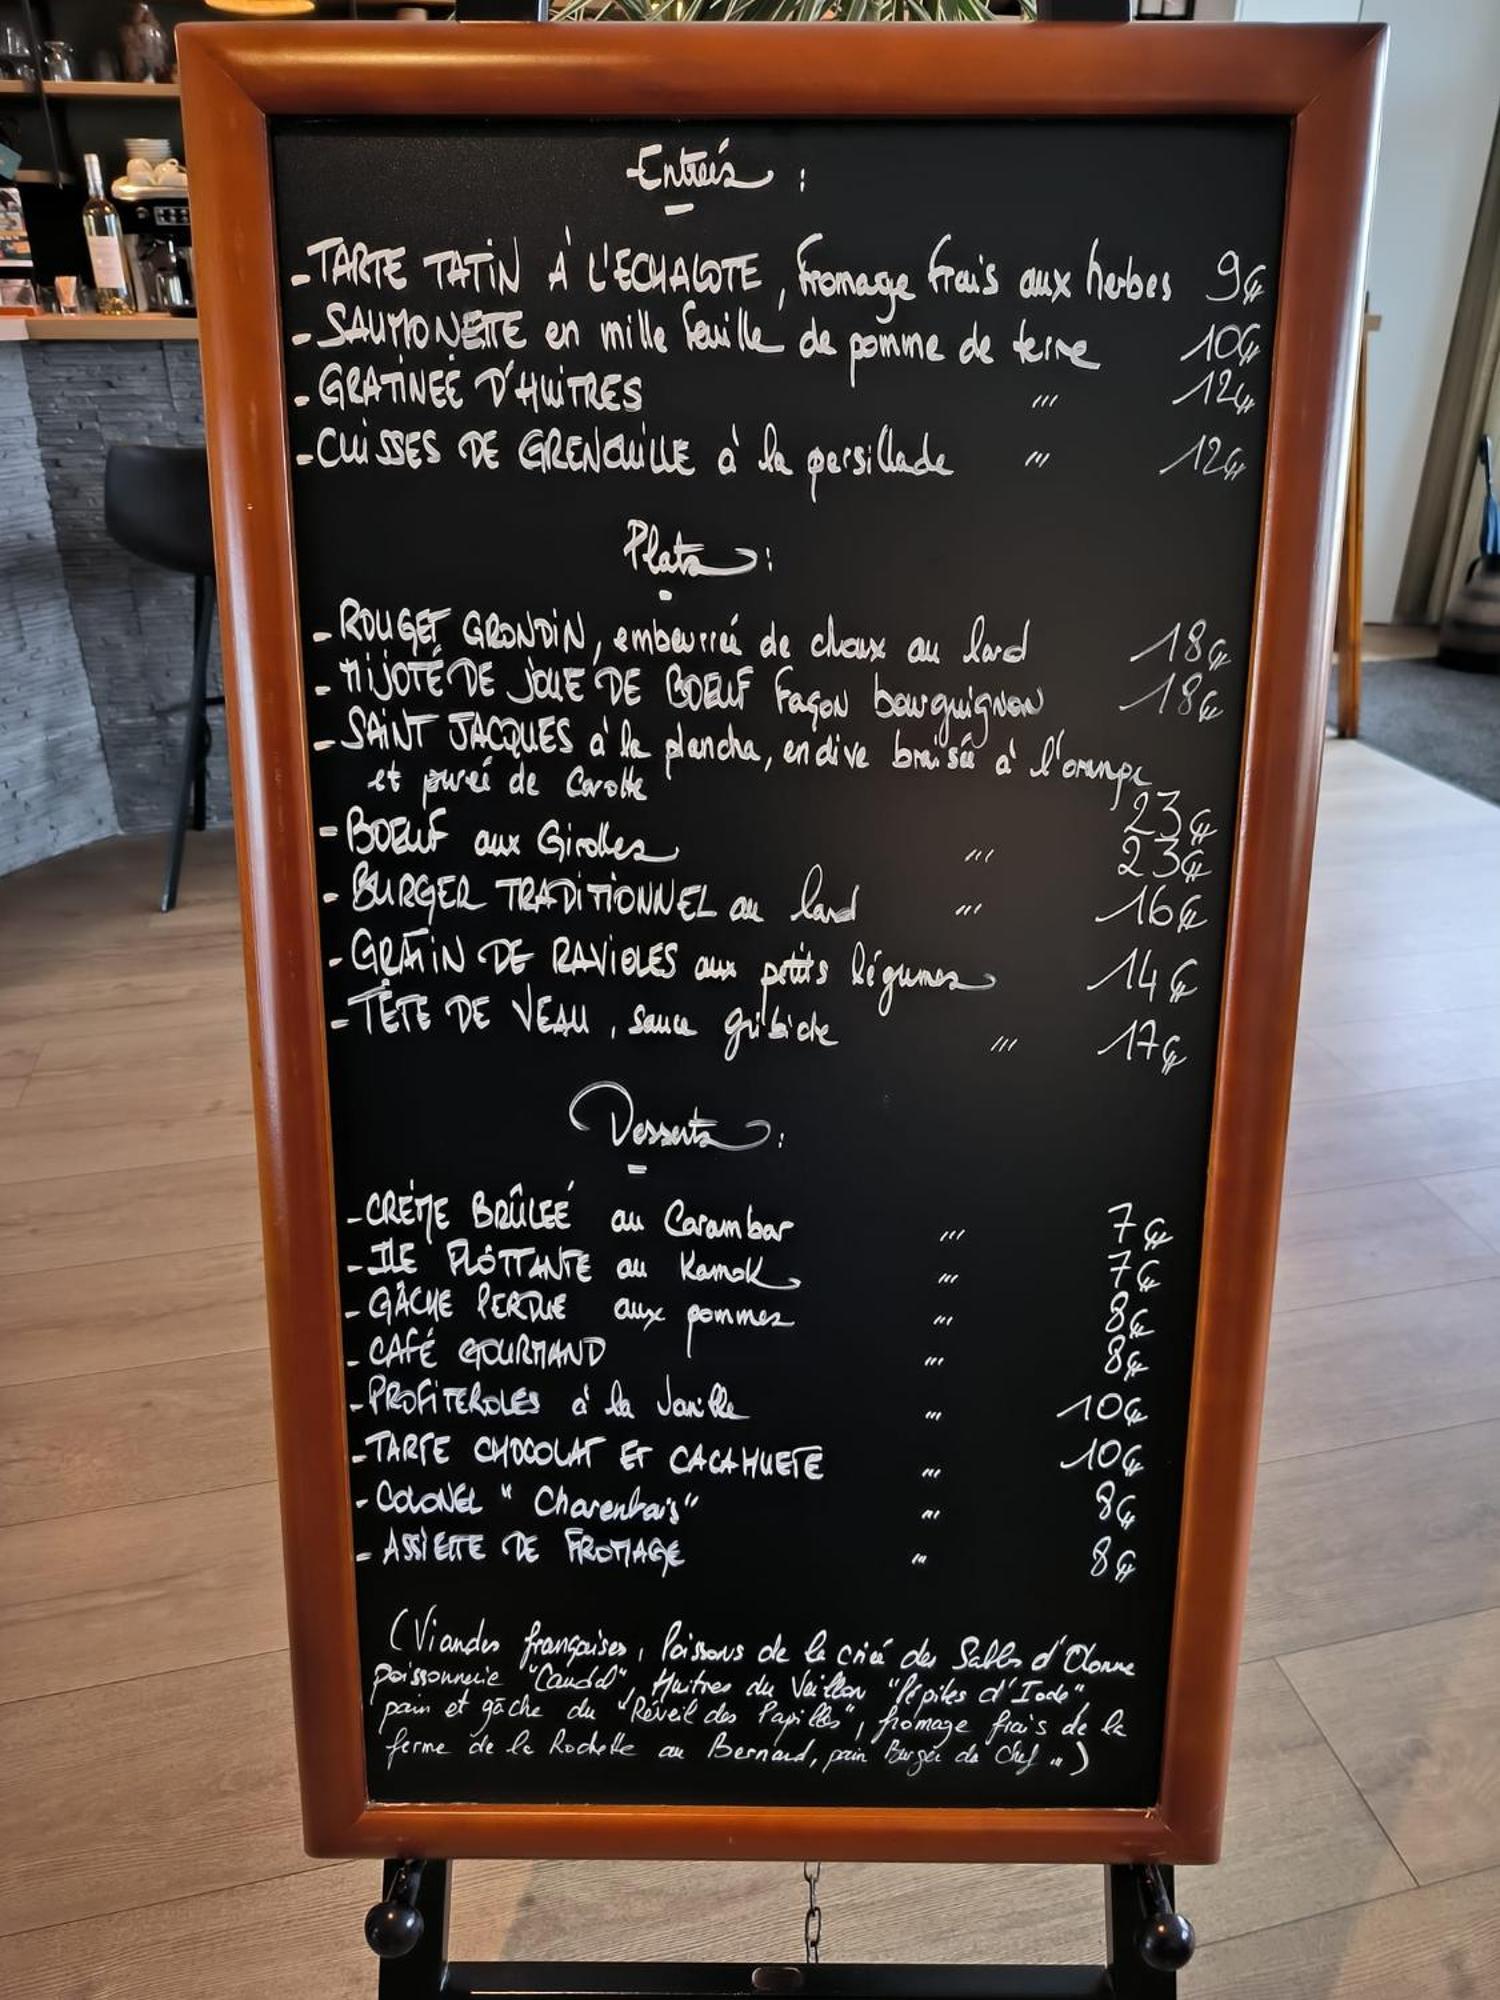 Entrées :
- TARTE TATIN À L'ECHALOTE, fromage frais aux herbes 9€
- SAUMONETTE en mille feuille de pomme de terre 10€
- GRATINEE D'HUITRES /// 12€
- CUISSES DE GRENOUILLE à la persillade /// 12€
Plats :
- ROUGET GRONDIN, embeurrée de choux au lard 18€
- MIJOTÉ DE JOUE DE BOEUF façon bourguignon 18€
- SAINT JACQUES à la plancha, endive braisée à l'orange
et purée de carotte 23€
- BOEUF aux Girolles /// 23€
- BURGER TRADITIONNEL au lard /// 16€
- GRATIN DE RAVIOLES aux petits légumes 14€
- TÊTE DE VEAU, sauce gribiche /// 17€
Desserts :
- CRÈME BRÛLEÉ au Carambar /// 7€
- ILE FLOTTANTE au Kamok /// 7€
- GÂCHE PERDUE aux pommes /// 8€
- CAFÉ GOURMAND /// 8€
- PROFITEROLES à la Vanille /// 10€
- TARTE CHOCOLAT ET CACAHUETE /// 10€
- COLONEL "Charentais" /// 8€
- ASSIETTE DE FROMAGE /// 8€
(Viandes françaises, Poissons de la criée des Sables d'Olonne
poissonnerie , Huitres du Veillon "Pépites d'Iode",
pain et gâche du "Réveil des Papilles", fromage frais de la
ferme de la Rochette au Bernard, pain Burger du Chef ...)